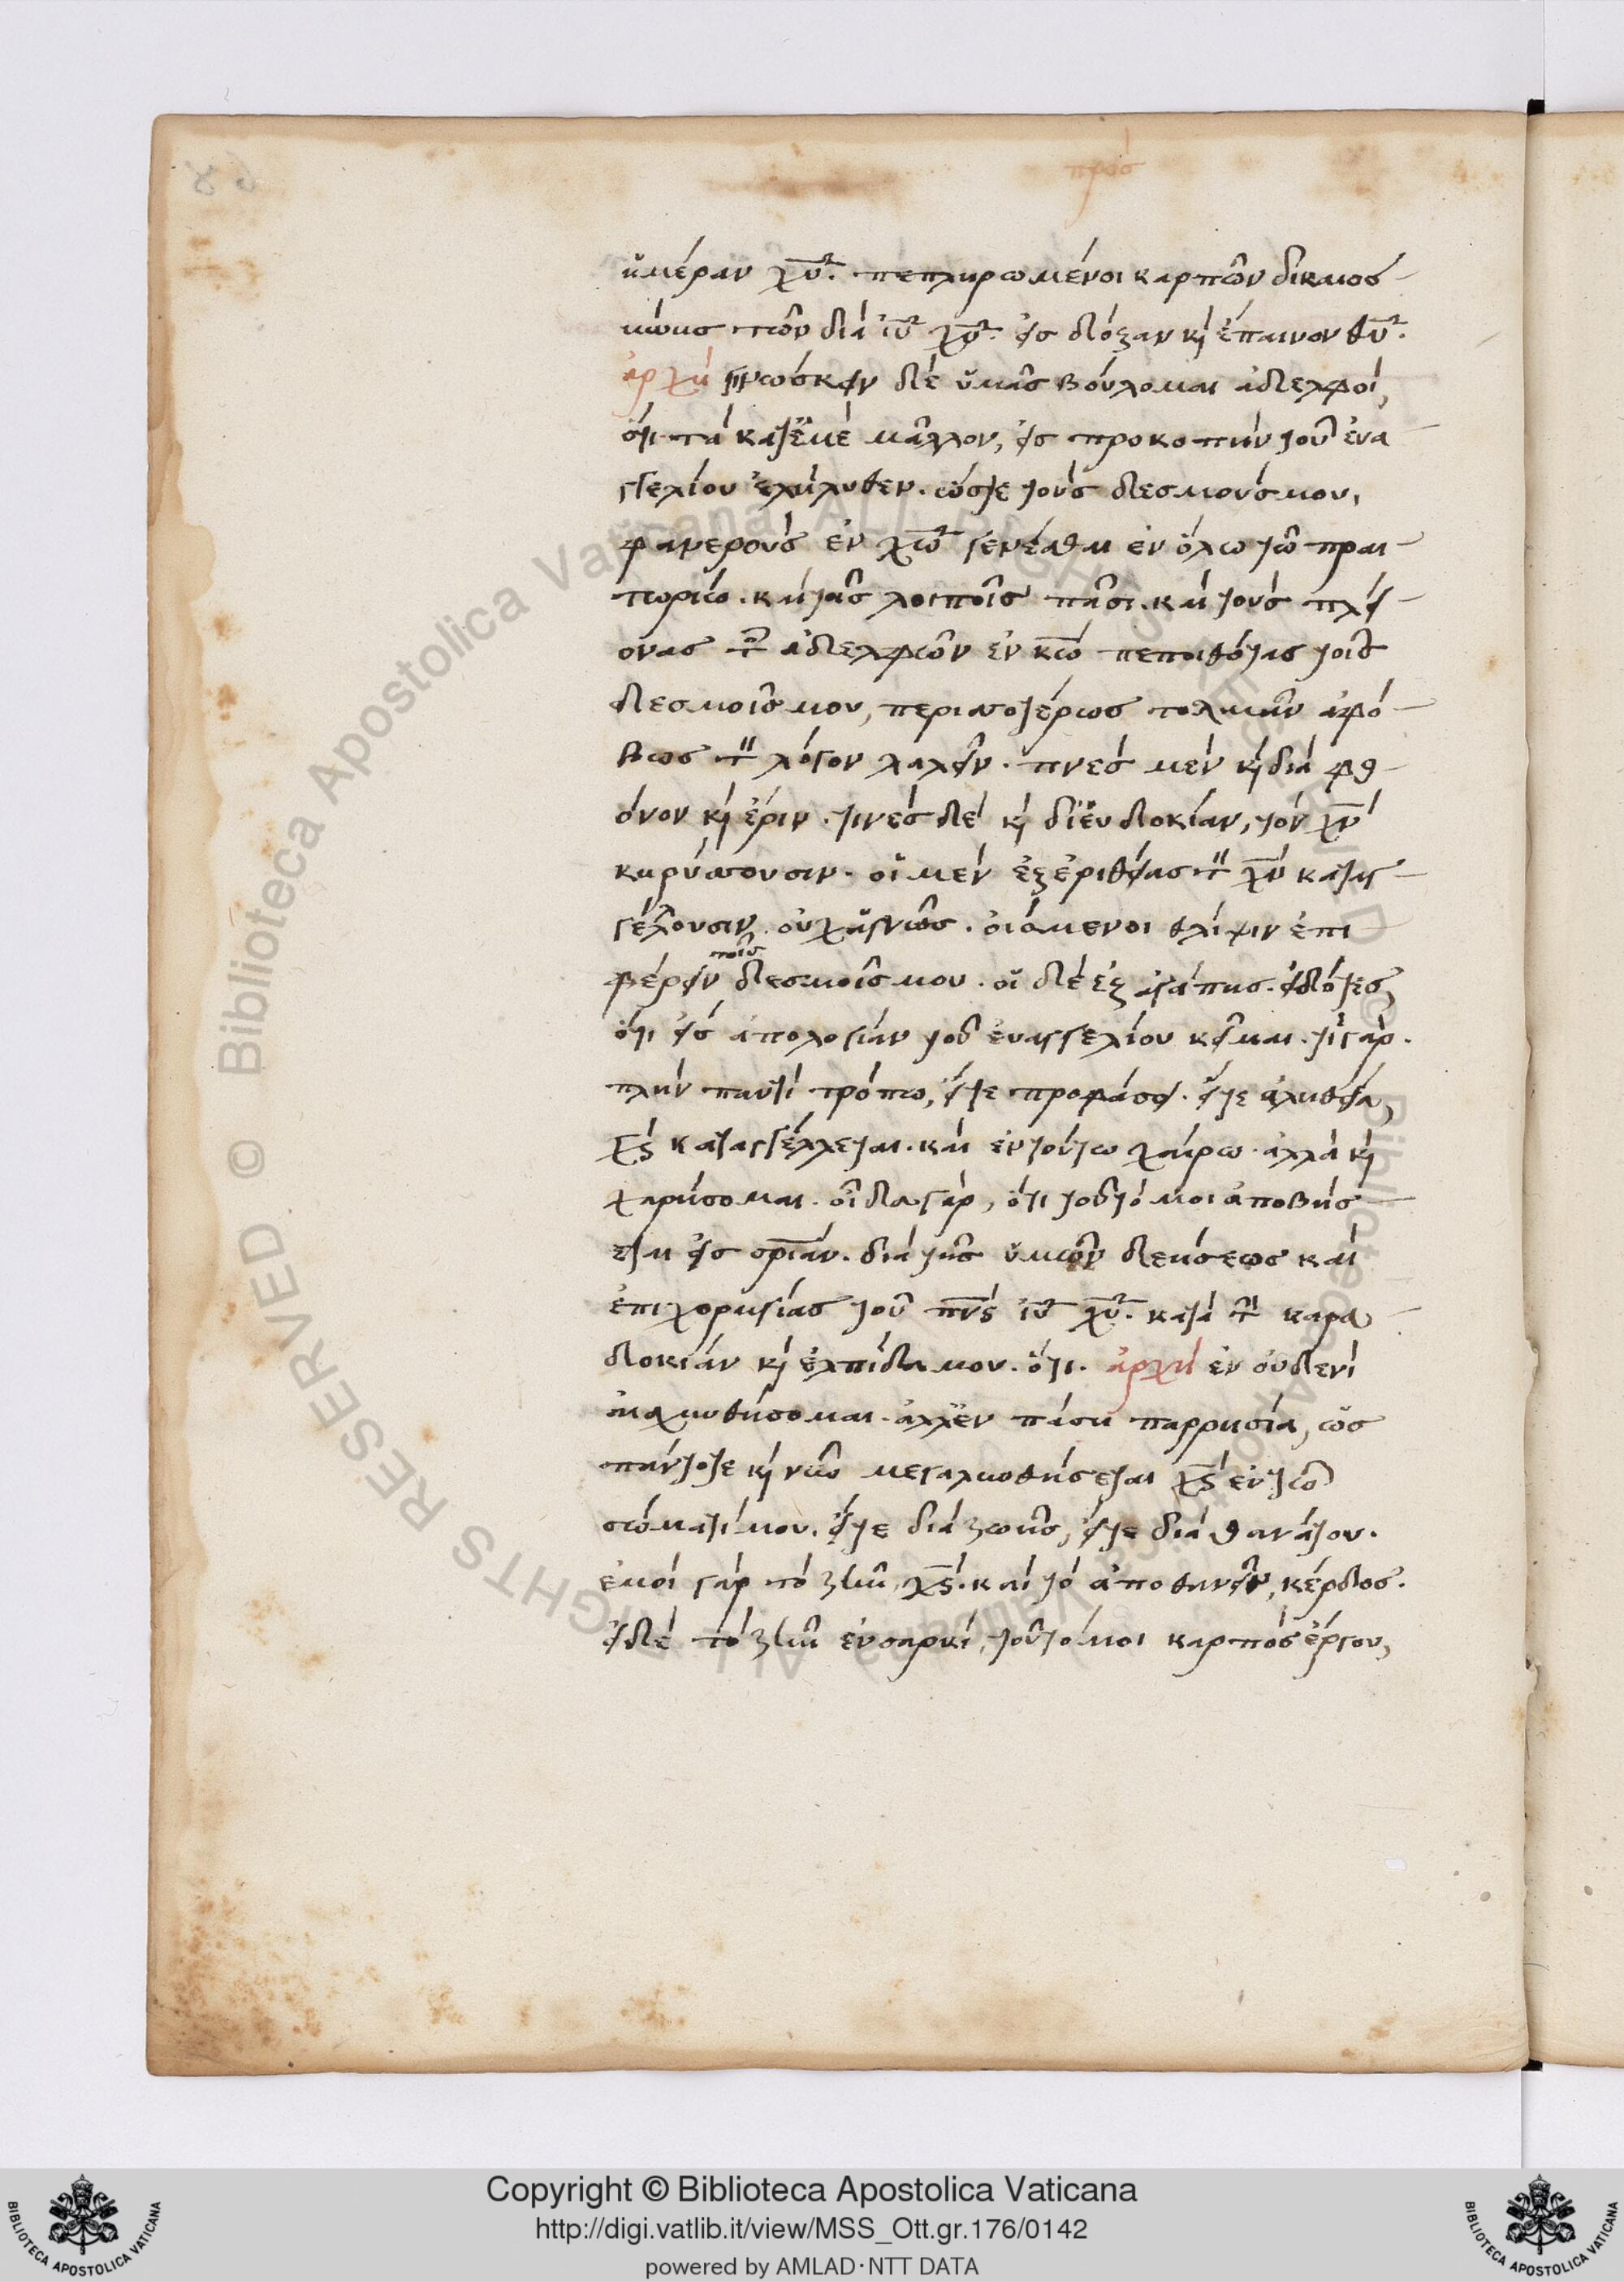 πρὸσ
ἡμέραν χυ. πεπληρωμένοι καρπῶν δικαιοσ
ύνησ τῶν διὰ ιυ χυ. εἰσ δόξαν κὶ ἔπαινον θυ.
ἀρχὴ γινώσκειν δὲ ὑμᾶσ βούλομαι ἀδελφοί,
ὅτι τὰ κατἐμὲ μᾶλλον, εἰσ προκοπὴν τοῦ ἐυα
γγελίου ἐλήλυθεν. ὥστε τοὺσ δεσμούσ μου,
φανεροὺσ ἐν χω γενέσθαι ἐν ὅλω τῶ πραι
τωρίω. καὶ τοῖσ λοιποῖσ πᾶσι. καὶ τοὺσ πλεί
ονασ τ ἀδελφῶν ἐν κω πεποιθότασ τοῖσ
δεσμοῖσ μου, περισσοτέρωσ τολμᾶν ἀφό
βωσ τ λόγον λαλεῖν. τινὲσ μὲν κὶ διὰ φθ
όνον κὶ ἔριν. τινὲσ δὲ κὶ δι'ἐυδοκίαν, τὸν χν
κηρύσσουσιν. οἱ μὲν ἐξ ἐριθείασ τ χν καταγ
γέλουσιν οὐχ ἁγνῶσ. οἰόμενοι θλίψιν ἐπι
φέρειν τοῖσ δεσμοῖσ μου. οἱ δὲ ἐξ ἀγάπησ. εἰδότεσ,
ὅτι εἰσ ἀπολογίαν τοῦ ἐυαγγελίου κεῖμαι. τί γάρ.
πλὴν παντὶ τρόπω, εἴτε προφάσει. εἴτε ἀληθεία,
χσ καταγγέλλεται. καὶ ἐν τούτω χαίρω. ἀλλὰ κὶ
χαρήσομαι. οἶδα γάρ, ὅτι τοῦτό μοι ἀποβήσ
εται εἰσ σριαν. διὰ τῆσ ὑμῶν δεήσεωσ καὶ
ἐπιχορηγίασ τοῦ πνσ ιυ χυ. κατὰ τ καρα
δοκίαν κὶ ἐλπίδα μου. ὅτι. ἀρχὴ ἐν οὐδενὶ
αἰσχυνθήσομαι. ἀλλ'ἐν πάση παρρησία, ὡσ
πάντοτε κὶ νῦν μεγαλυνθήσεται χσ ἐν τῶ
σώματί μου. εἴτε διὰ ζωῆσ, εἴτε διὰ θανάτου.
ἐμοὶ γὰρ τὸ ζῆν, χσ. καὶ τὸ ἀποθανεῖν, κέρδοσ.
εἰ δὲ τὸ ζῆν ἐν σαρκί, τοῦτό μοι καρπὸσ ἔργου,
Copyright © Biblioteca Apostolica Vaticana
http://digi.vatlib.it/view/MSS_Ott.gr.176/0142
powered by AMLAD·NTT DATA